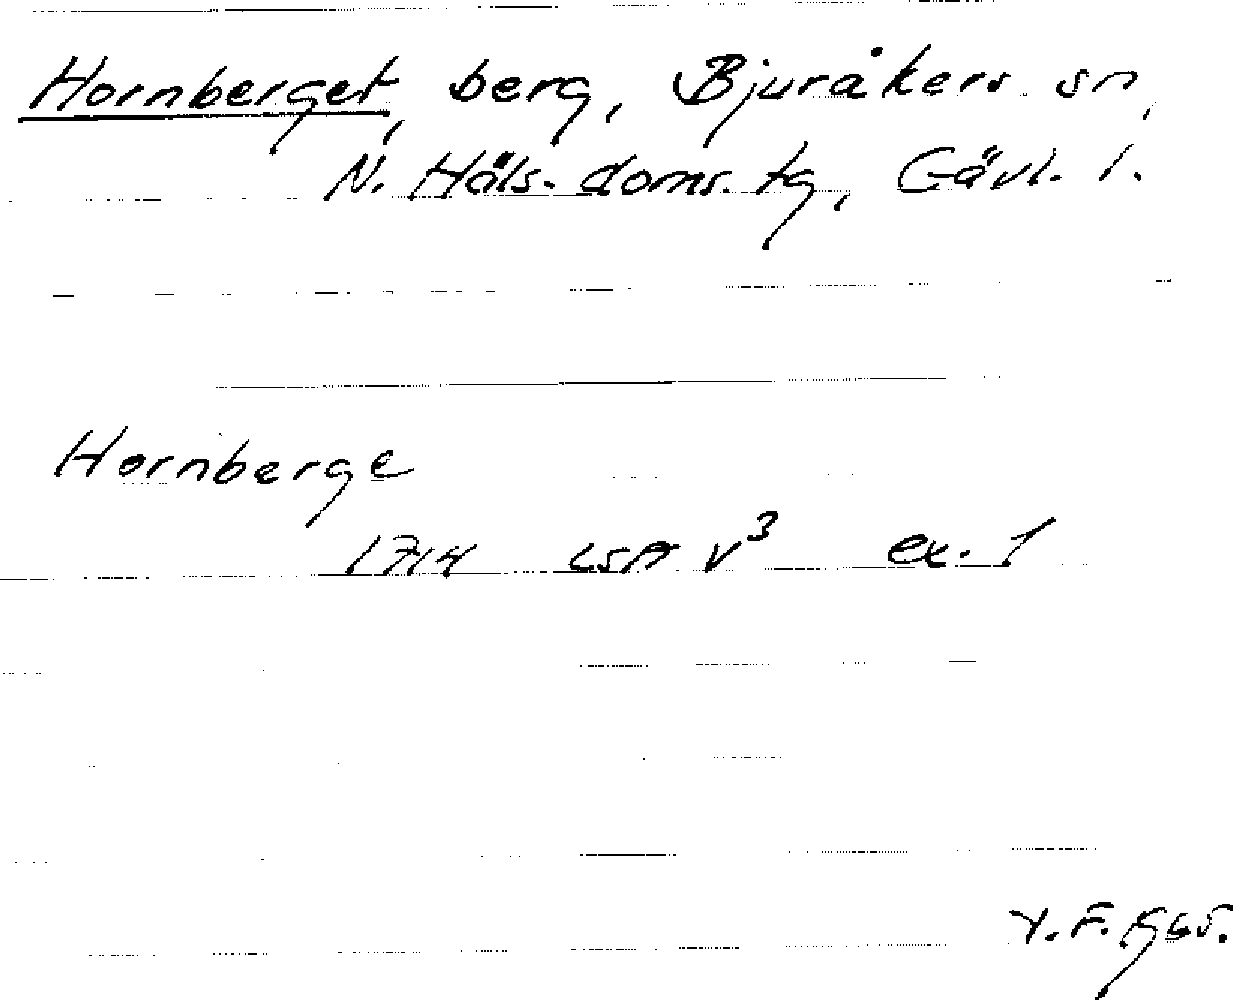 Hornberget, berg, Bjuråkers sn,
N. Häls. doms. tg, Gävl. l.
Hornberge
1714 LSA V³ ex. 1
Y.F. 1965.